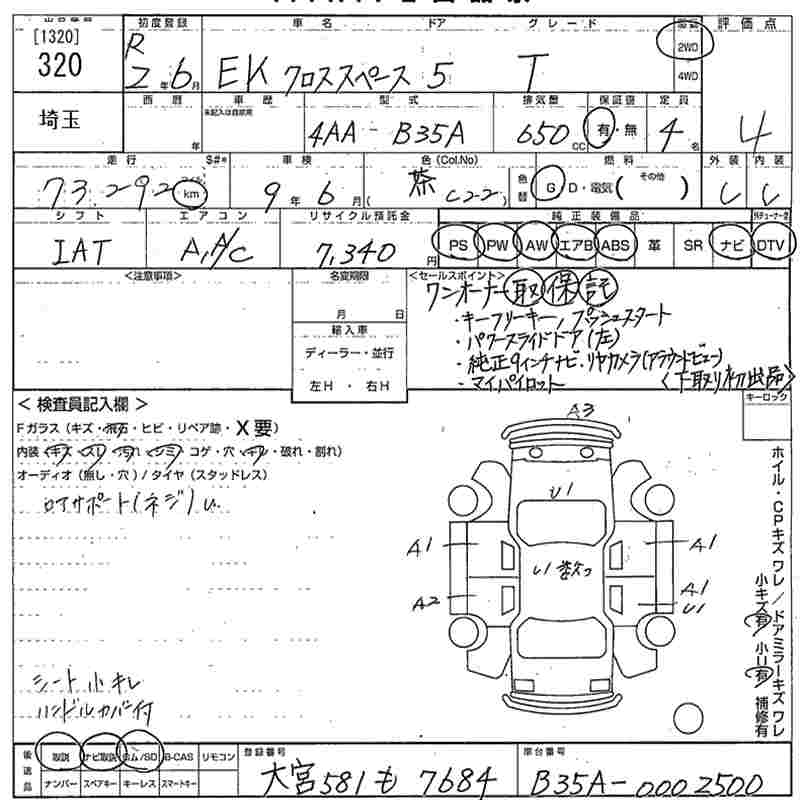 [1320]
320
初度登録 車名 ドア グレード 評価点
R 2年6月 EKクロススペース 5 T 2WD 4WD
埼玉
西暦 車歴 型式 排気量 保証書 定員
年 未記入は自家用 4AA-B35A 650cc 有・無 4名 4
走行 S#* 車検 色(Col.No) 燃料 外装 内装
73,292km 9年6月( 茶 C22) 色替 G D・電気( その他 )
シフト エアコン リサイクル預託金 純正装備品
IAT A,A/C 7,340円 PS PW AW エアB ABS 革 SR ナビ DTV
<注意事項> 名変期限 <セールスポイント>
ワンオーナー 取 保 記
月 日 ・キーフリーキー/プッシュスタート
輸入車 ・パワースライドドア(左)
ディーラー・並行 ・純正9インチナビ.リヤカメラ(アラウンドビュー)
左H ・ 右H ・マイパイロット <下取り初出品>
<検査員記入欄> キーロック
Fガラス(キズ・飛石・ヒビ・リペア跡・X要)
内装(キズ・スレ・汚れ・シミ・コゲ・穴・キレ・破れ・割れ)
オーディオ(無し・穴)/タイヤ(スタッドレス)
ロアサポート(ネジ)U
A3
U1
A1 A1
U1数つ
A2 A1
U1
ホイル・CPキズ ワレ/ドアミラーキズ ワレ
小キズ有 小U有 補修有
シート小キレ
ハンドルカバー付
後送品 取説 ナビ取説 ロム/SD B-CAS リモコン 登録番号 車台番号
ナンバー スペアキー キーレス スマートキー 大宮581も7684 B35A-0002500